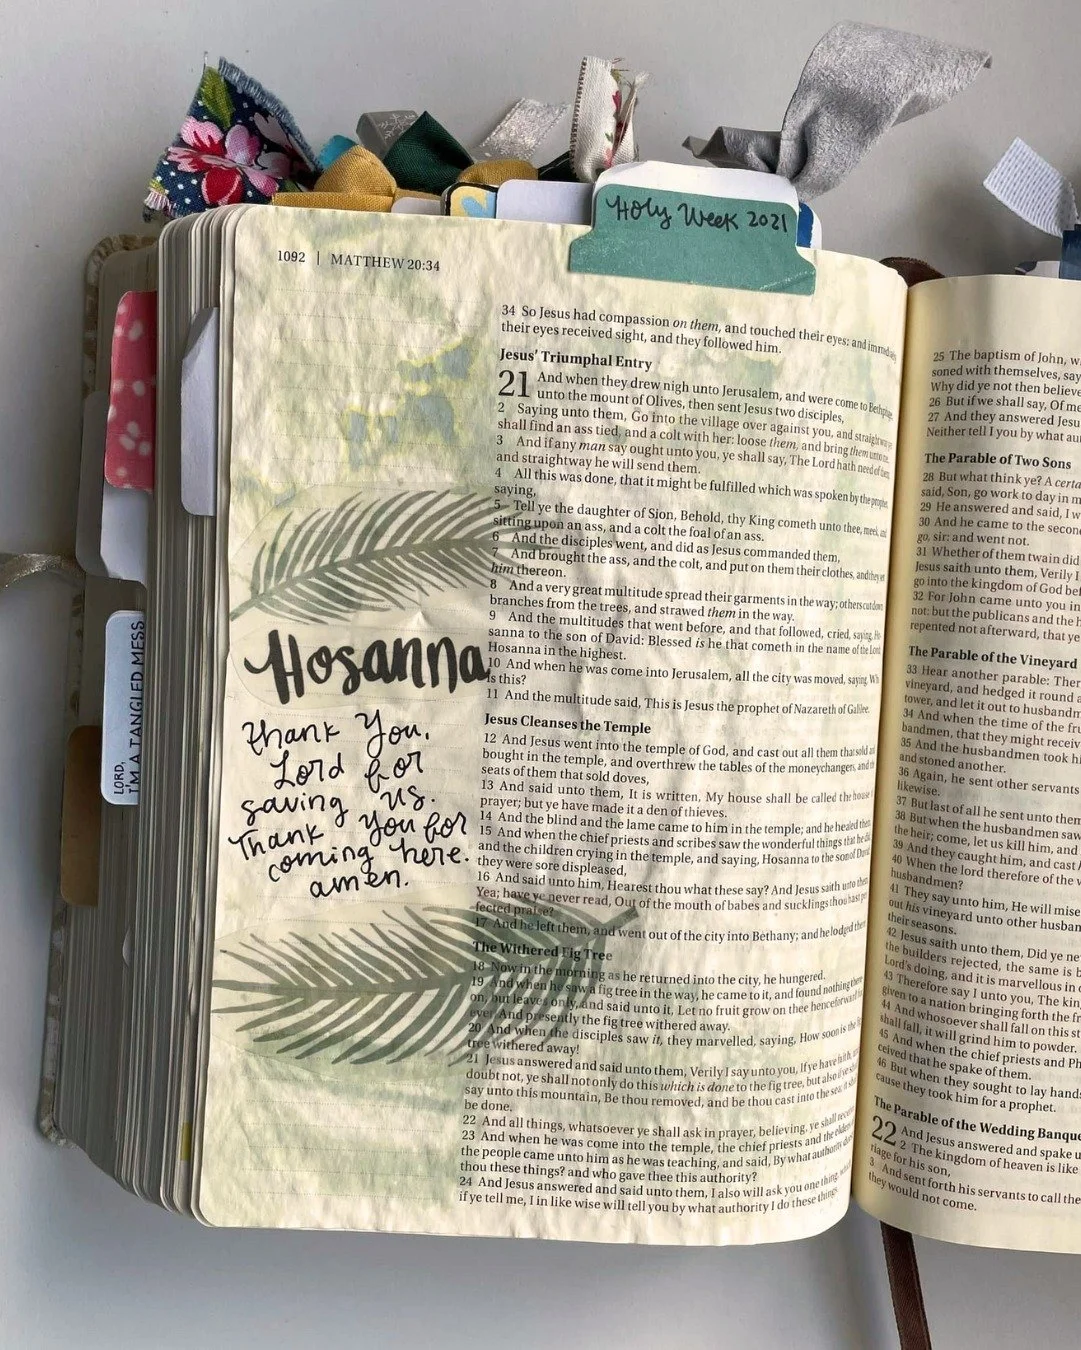 Holy Week 2021
1092 | MATTHEW 20:34
34 So Jesus had compassion on them, and touched their eyes: and
their eyes received sight, and they followed him.
Jesus' Triumphal Entry
21 And when they drew nigh unto Jerusalem, and were come to Bethphage,
unto the mount of Olives, then sent Jesus two disciples,
2 Saying unto them, Go into the village over against you, and straightway
shall find an ass tied, and a colt with her: loose them, and bring them unto me.
3 And if any man say ought unto you, ye shall say, The Lord hath need of them
and straightway he will send them.
4 All this was done, that it might be fulfilled which was spoken by the prophet,
saying,
5 Tell ye the daughter of Sion, Behold, thy King cometh unto thee, meek, and
sitting upon an ass, and a colt the foal of an ass.
6 And the disciples went, and did as Jesus commanded them,
7 And brought the ass, and the colt, and put on them their clothes, and they set
him thereon.
8 And a very great multitude spread their garments in the way; others cut down
branches from the trees, and strawed them in the way.
9 And the multitudes that went before, and that followed, cried, saying, Ho-
sanna to the son of David: Blessed is he that cometh in the name of the Lord
Hosanna in the highest.
10 And when he was come into Jerusalem, all the city was moved, saying, Wh
is this?
11 And the multitude said, This is Jesus the prophet of Nazareth of Galilee.
Jesus Cleanses the Temple
12 And Jesus went into the temple of God, and cast out all them that sold and
bought in the temple, and overthrew the tables of the moneychangers, and the
seats of them that sold doves,
13 And said unto them, It is written, My house shall be called the house
prayer; but ye have made it a den of thieves.
14 And the blind and the lame came to him in the temple; and he healed them
15 And when the chief priests and scribes saw the wonderful things that he did
and the children crying in the temple, and saying, Hosanna to the son of David
they were sore displeased,
16 And said unto him, Hearest thou what these say? And Jesus saith unto them
Yea; have ye never read, Out of the mouth of babes and sucklings thou hast per-
fected praise?
17 And he left them, and went out of the city into Bethany; and he lodged there
The Withered Fig Tree
18 Now in the morning as he returned into the city, he hungered.
19 And when he saw a fig tree in the way, he came to it, and found nothing there
on, but leaves only, and said unto it, Let no fruit grow on thee henceforward
ever. And presently the fig tree withered away.
20 And when the disciples saw it, they marvelled, saying, How soon is the fig
tree withered away!
21 Jesus answered and said unto them, Verily I say unto you, If ye have faith, and
doubt not, ye shall not only do this which is done to the fig tree, but also if ye shall
say unto this mountain, Be thou removed, and be thou cast into the sea; it shall
be done.
22 And all things, whatsoever ye shall ask in prayer, believing, ye shall receive
23 And when he was come into the temple, the chief priests and the elders
the people came unto him as he was teaching, and said, By what authority doest
thou these things? and who gave thee this authority?
24 And Jesus answered and said unto them, I also will ask you one thing, which
if ye tell me, I in like wise will tell you by what authority I do these things.
Hosanna
Thank You,
Lord for
saving us.
Thank you for
coming here.
amen.
LORD,
I'M A TANGLED MESS
25 The baptism of John, w
soned with themselves, say
Why did ye not then believe
26 But if we shall say, Of me
27 And they answered Jesu
Neither tell I you by what au
The Parable of Two Sons
28 But what think ye? A certa
said, Son, go work to day in m
29 He answered and said, I w
30 And he came to the secon
go, sir: and went not.
31 Whether of them twain did
Jesus saith unto them, Verily I
go into the kingdom of God bef
32 For John came unto you in
not: but the publicans and the h
repented not afterward, that ye
The Parable of the Vineyard
33 Hear another parable: Ther
vineyard, and hedged it round a
tower, and let it out to husbandm
34 And when the time of the fru
bandmen, that they might receiv
35 And the husbandmen took hi
and stoned another.
36 Again, he sent other servants
likewise.
37 But last of all he sent unto them
38 But when the husbandmen saw
the heir; come, let us kill him, and
39 And they caught him, and cast
40 When the lord therefore of the v
husbandmen?
41 They say unto him, He will mise
out his vineyard unto other husban
their seasons.
42 Jesus saith unto them, Did ye ne
the builders rejected, the same is b
Lord's doing, and it is marvellous in o
43 Therefore say I unto you, The kin
given to a nation bringing forth the fr
44 And whosoever shall fall on this st
shall fall, it will grind him to powder.
45 And when the chief priests and Ph
ceived that he spake of them.
46 But when they sought to lay hands
cause they took him for a prophet.
The Parable of the Wedding Banque
22 And Jesus answered and spake u
2 The kingdom of heaven is like
riage for his son,
3 And sent forth his servants to call the
they would not come.